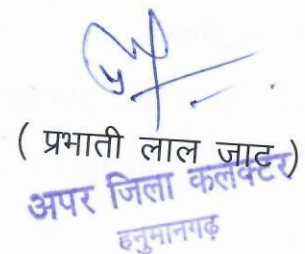 ( प्रभाती लाल जाट )
अपर जिला कलेक्टर
हनुमानगढ़